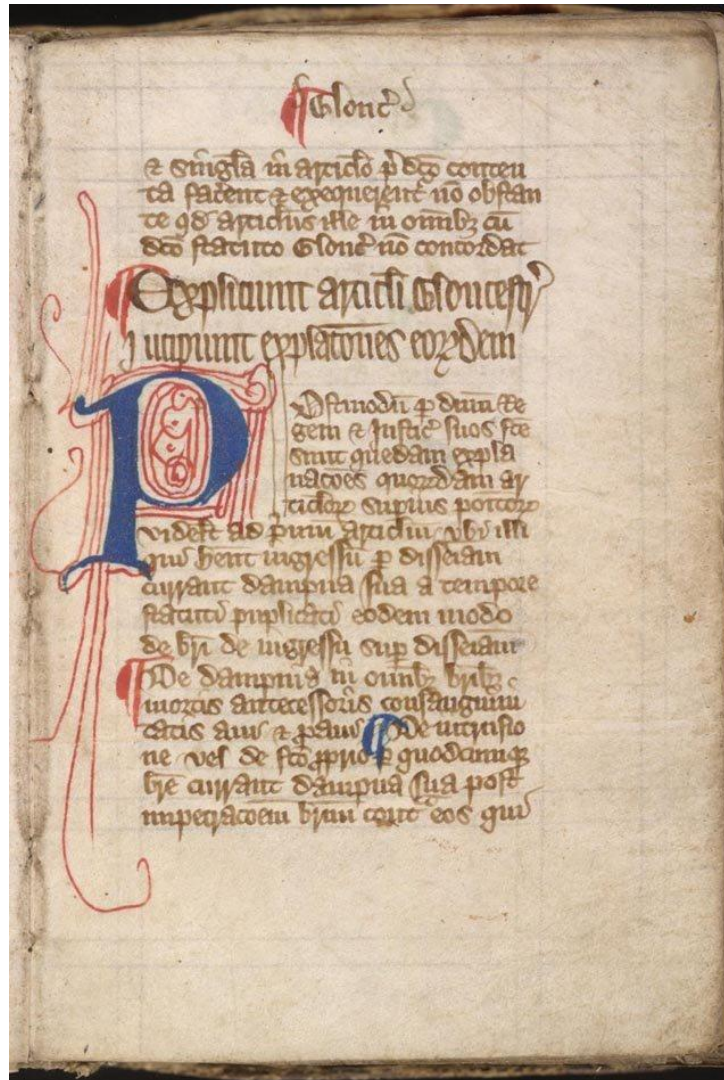 ¶ Glouc̉
& singl̃a in articl̃o p̃dc̃o conten
ta facent & exequerent̉ nõ obstan
te qd̉ articlus ille in om̃ibꝫ cũ
dc̃o statuto Glouc̉ nõ concordat
¶ Expliciunt articl̃i Gloucestr̉
Incipiunt explac̃ones eoꝝdem
Postmodũ ꝑ dñm Re
gem & Justic̉ suos fc̃e
sunt quedam expla
nac̃oes quorẽdam ar
ticloꝝ supius poĩtoꝝ
videlt̉ ad pͥmũ articl̃m vbi illi
qui hẽnt ingressũ ꝑ disseiam
currant dampna sua a tempore
statuti puplicati eodem modo
de br̃i de ingressu sup̱ disseiam
¶ De dampnis in om̃ibꝫ br̃ibꝫ
mortis antecessoris consanguini
tatis aui & ꝓaui ¶ De intrusio
ne vel de fc̃o ꝓprio ꝑ quodcumqꝫ
br̃e currant dampna sua post
impetrac̃oem br̃ium cont̉ eos qui